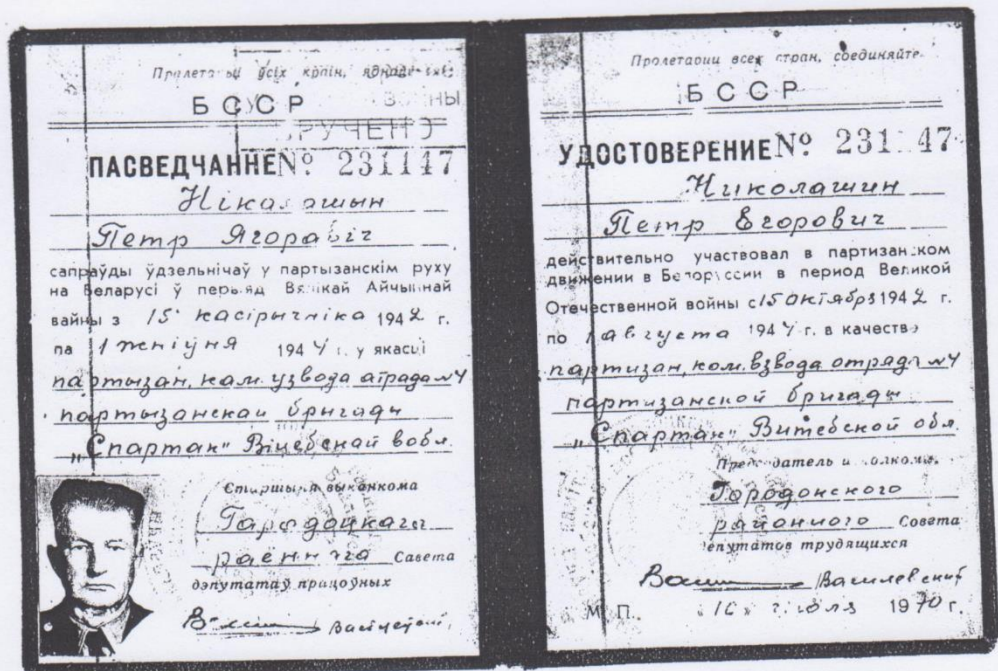 Пралетарыі ўсіх краін,
БССР
ВОЙНЫ
ВРУЧЕНО
ПАСВЕДЧАННЕ № 231147
Нікалашын
Петр Ягоравіч
сапраўды ўдзельнічаў у партызанскім руху
на Беларусі ў перыяд Вялікай Айчыннай
вайны з 15 касірычніка 1942 г.
па 1 жніўня 1944 г. у якасці
партызан, кам. узвода атрада №4
партызанскай бригады
"Спартак" Віцебскай вобл.
Старшыня выканкома
Гарадоцкага
раённага Савета
дэпутатаў працоўных
Пролетарии всех стран, соединяйте
БССР
УДОСТОВЕРЕНИЕ № 231 47
Николашин
Петр Егорович
действительно участвовал в партизанском
движении в Белоруссии в период Великой
Отечественной войны с 15 октября 1942 г.
по 1 августа 1944 г. в качестве
партизан, ком. взвода отряда №4
партизанской бригады
"Спартак" Витебской обл.
Председатель исполкома
Городокского
районного Совета
депутатов трудящихся
Василевский
М. П. "16" июля 1970 г.